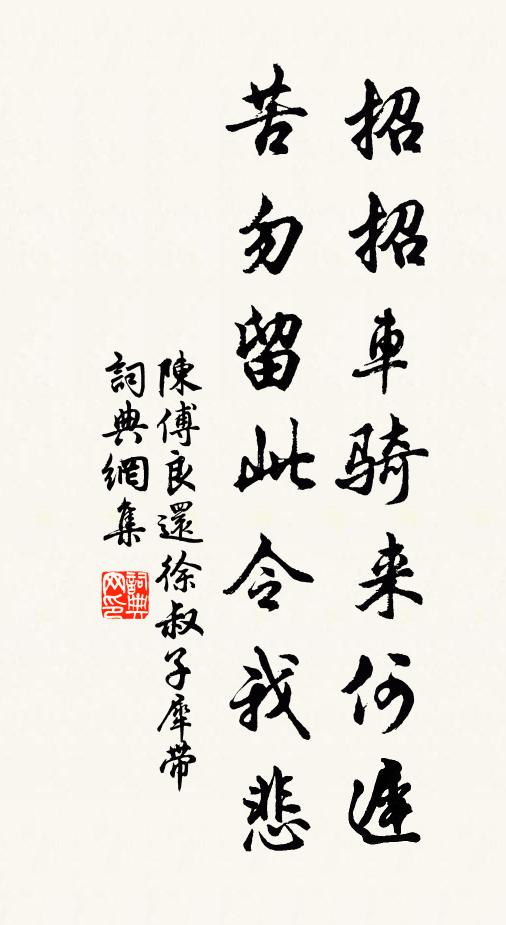 招招車騎来何遲
苦勿留此令我悲
陳傅良還徐叔子犀帶
詞典網集
詞典网印